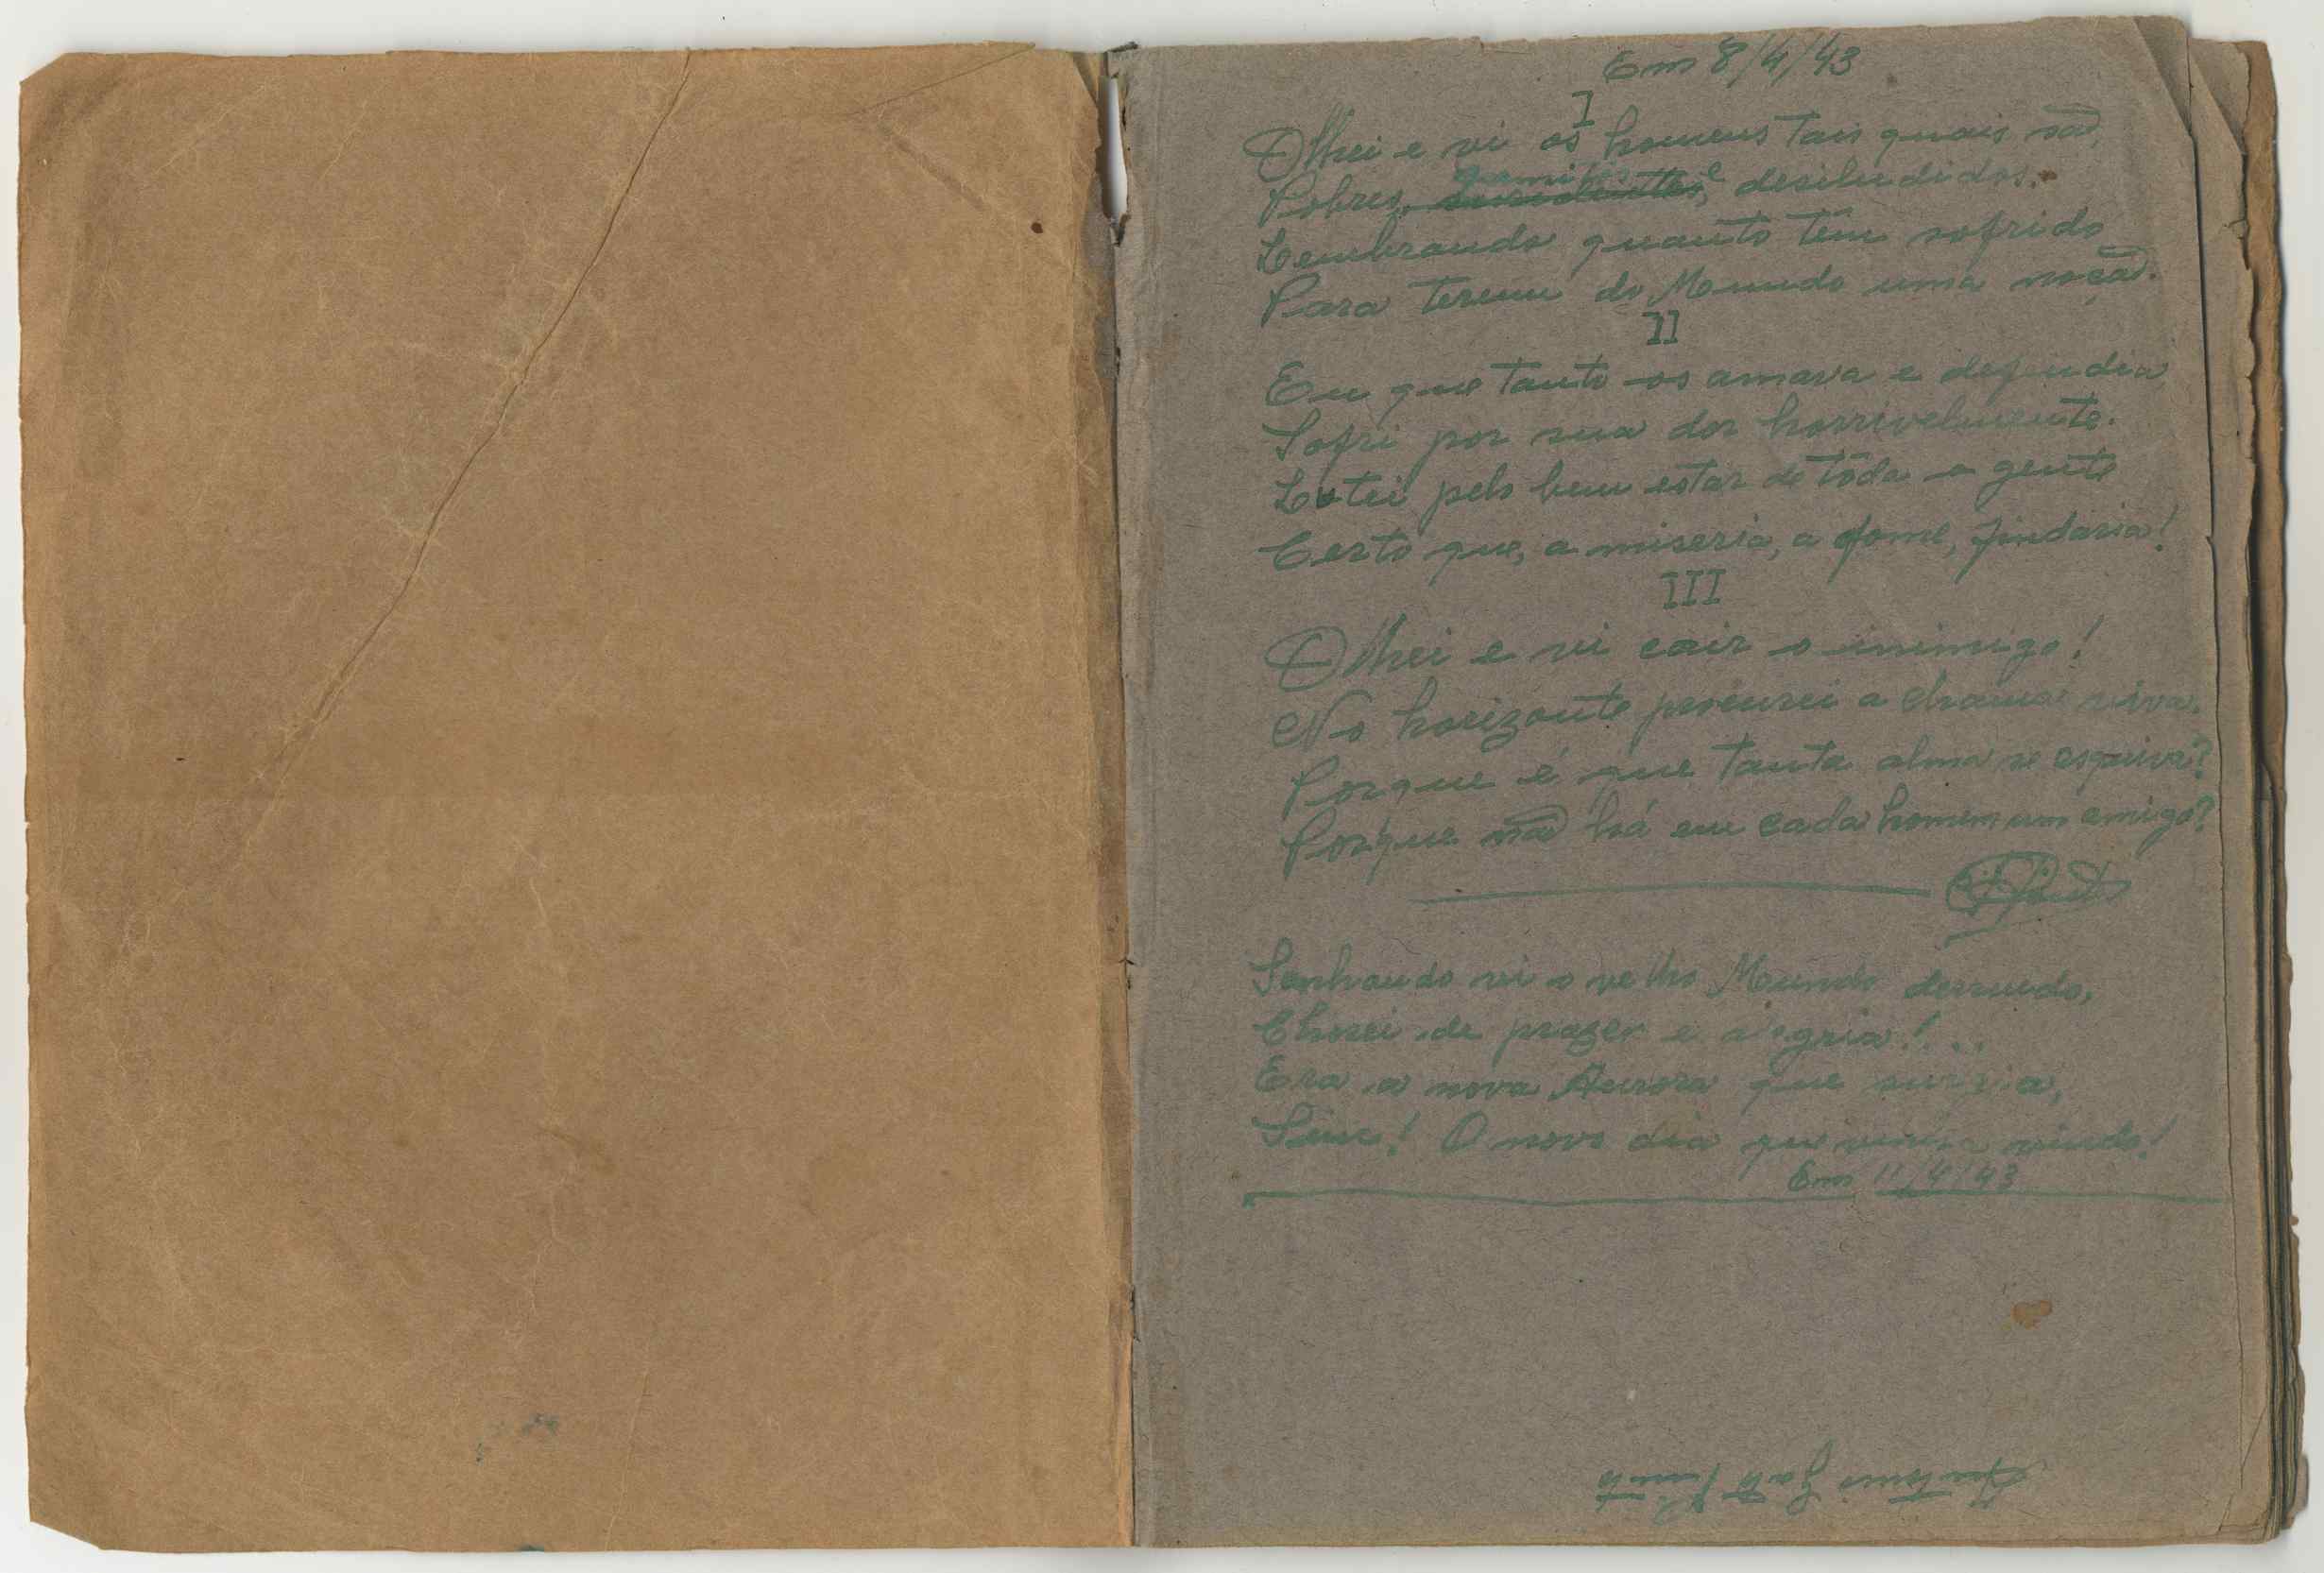 Em 8/4/43
I
Olhei e vi os homens tais quais são,
Pobres, famintos e desiludidos.
Lembrando quanto têm sofrido
Para terem do Mundo uma noção.
II
Eu que tanto os amava e defendia
Sofri por sua dor horrivelmente.
Lutei pelo bem estar de tôda a gente
Certo que, a miseria, a fome, findaria!
III
Olhei e vi cair o inimigo!
No horizonte procurei a chama viva.
Porque é que tanta alma se esquiva?
Porque não há em cada homem um amigo?
Sonhando vi o velho Mundo derruindo,
Chorei de prazer e alegria!...
Era a nova Aurora que surgia,
Sim! O novo dia que vinha vindo!
Em 11/4/43
Antonio Gato Pinto